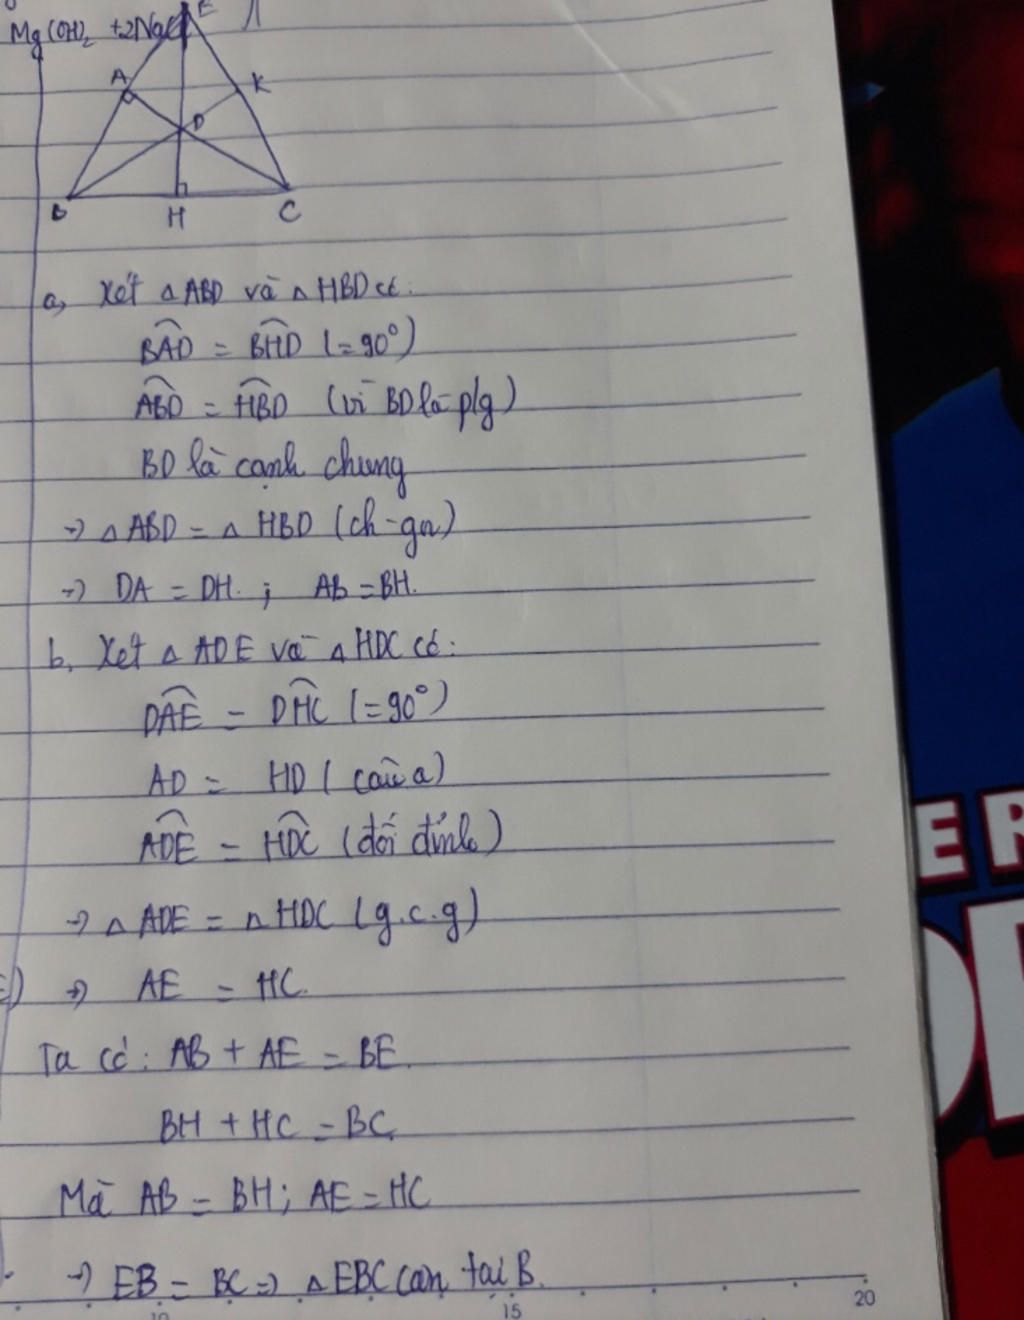 Mg(OH)₂ +2NaCl
E
A
K
D
B
H
C
a, Xét △ABD và △HBD có:
BAD = BHD (=90°)
ABD = HBD (vì BD là p/g)
BD là cạnh chung
→ △ABD = △HBD (ch-gn)
→ DA = DH. ; AB = BH.
b, Xét △ADE và △HDC có:
DAE = DHC (=90°)
AD = HD (câu a)
ADE = HDC (đối đỉnh)
→ △ADE = △HDC (g.c.g)
⇒ AE = HC.
Ta có: AB + AE = BE.
BH + HC = BC.
Mà AB = BH; AE = HC
→ EB = BC ⇒ △EBC cân tại B.
10
15
20
ER